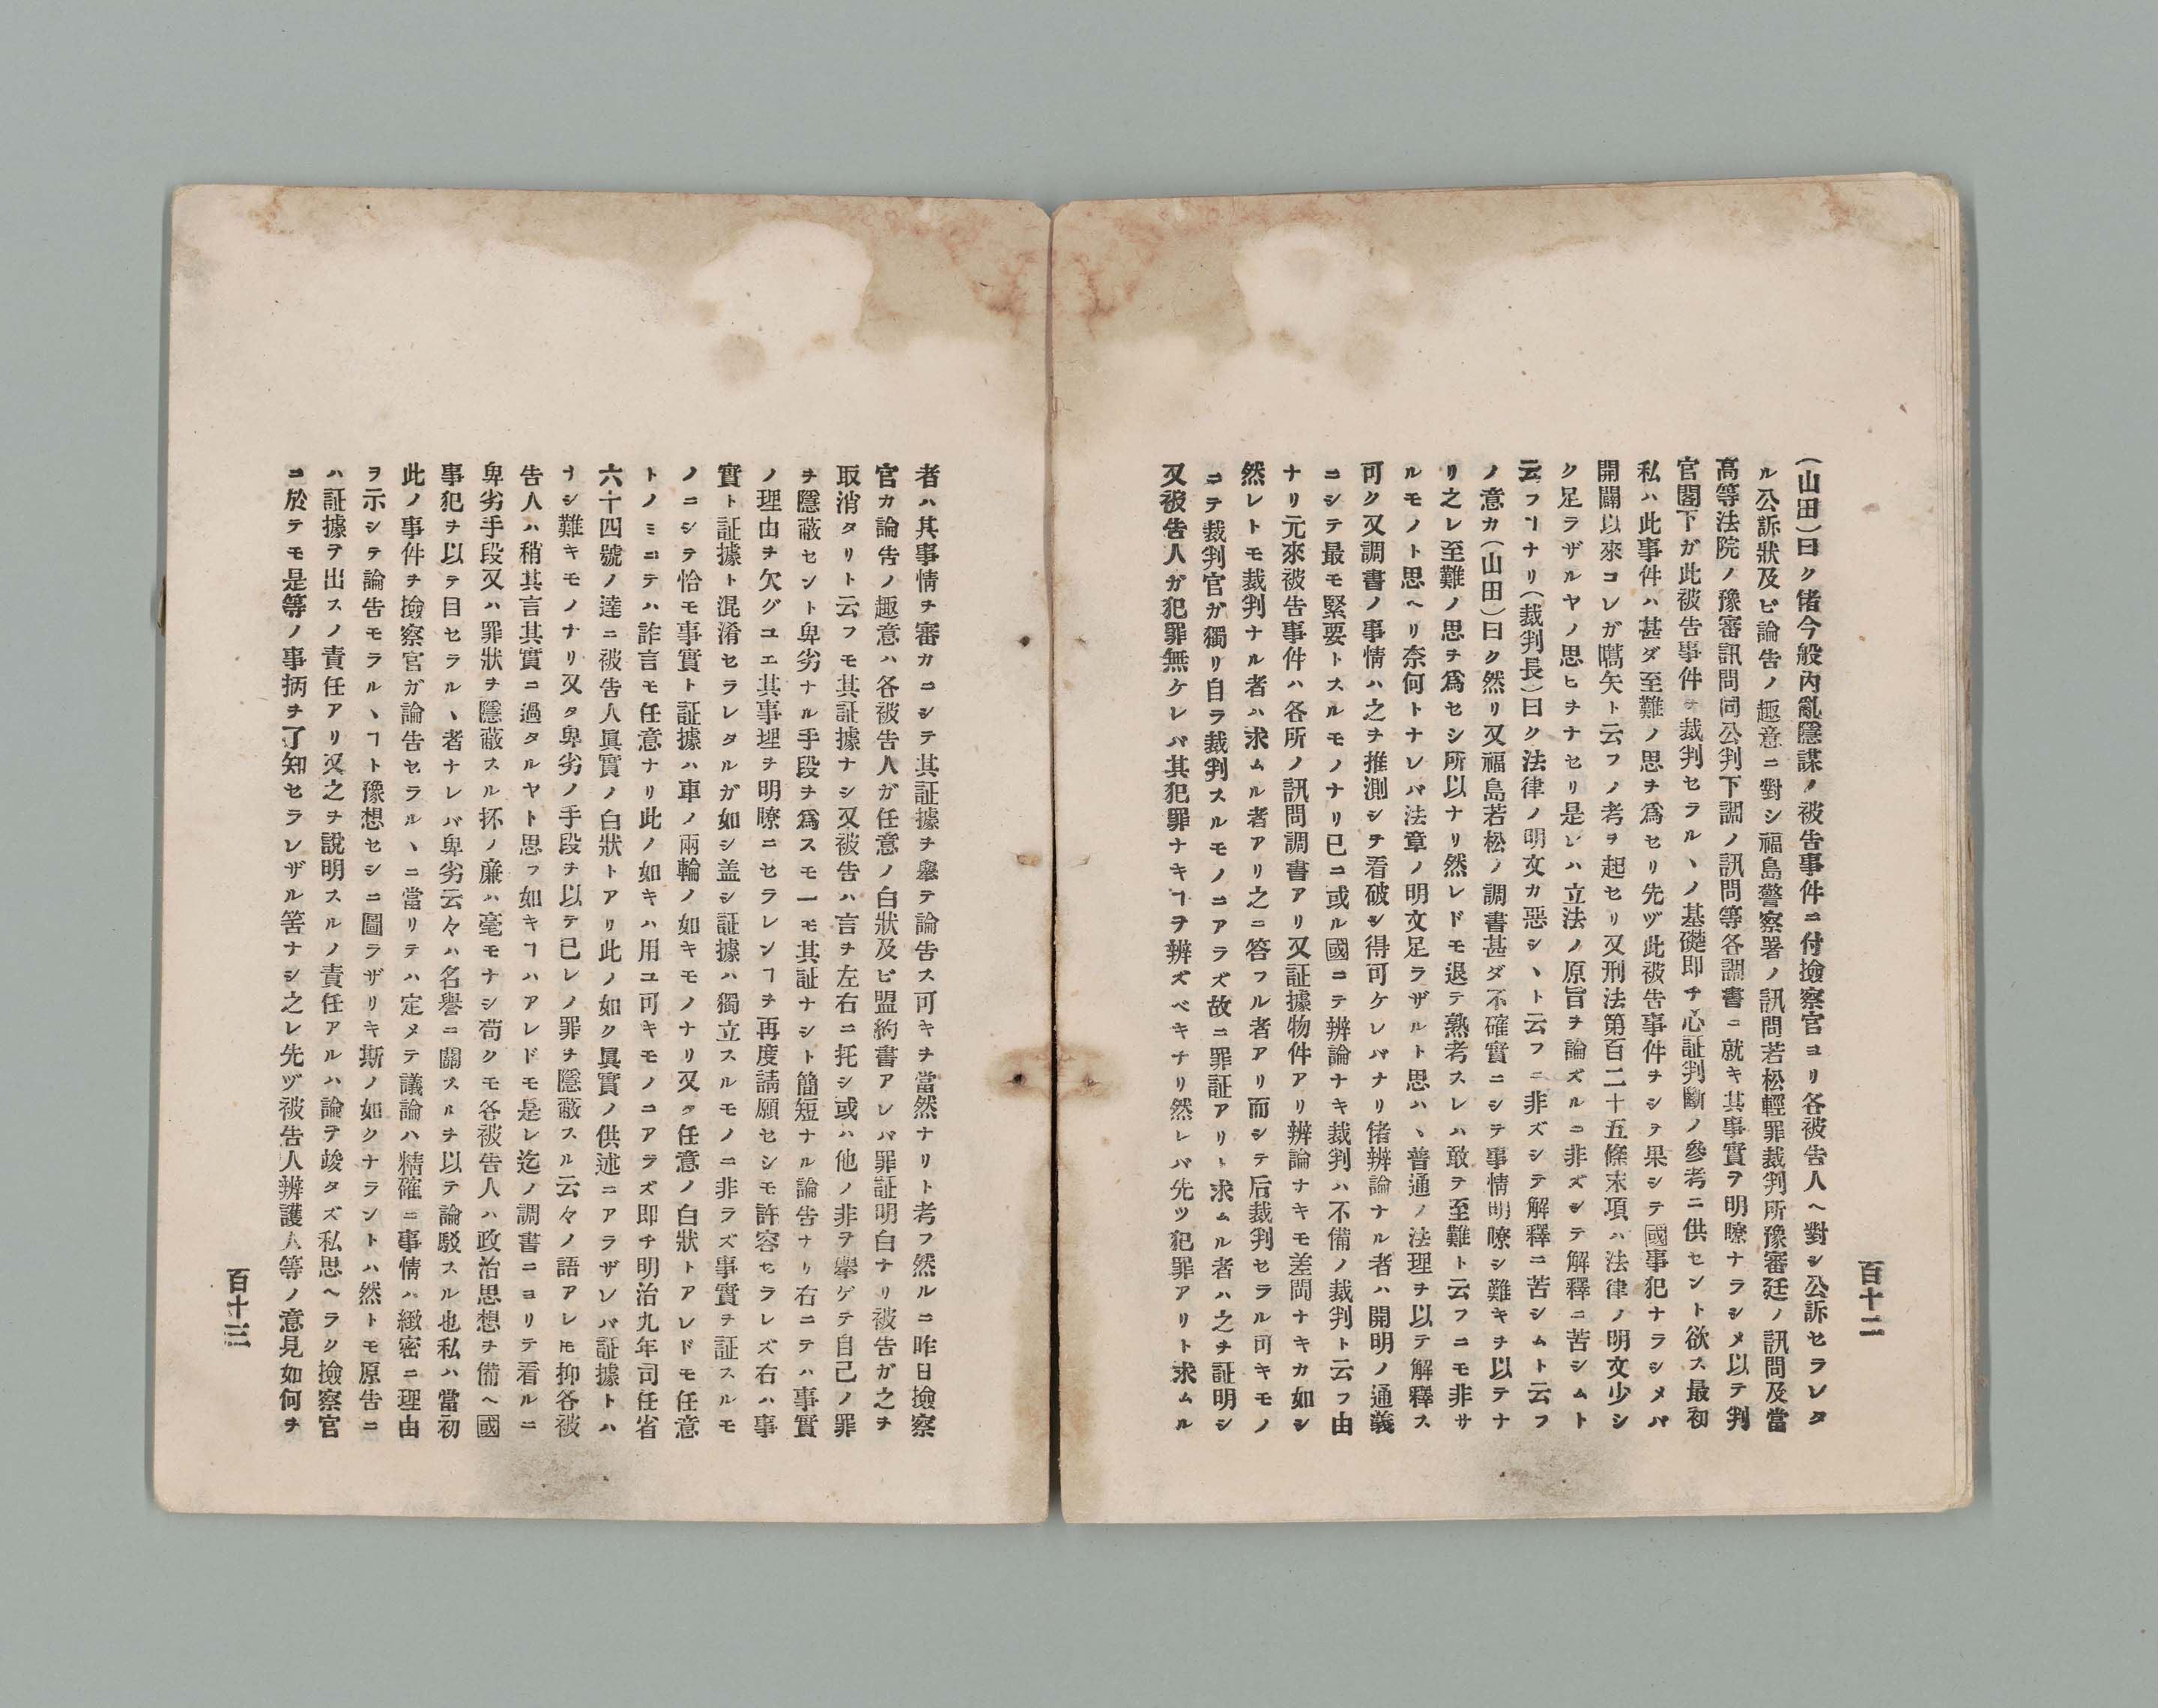 百十二
(山田)曰ク偖今般內亂隱謀ノ被告事件ニ付撿察官ヨリ各被告人ヘ對シ公訴セラレタ
ル公訴狀及ビ論告ノ趣意ニ對シ福島警察署ノ訊問若松輕罪裁判所豫審廷ノ訊問及當
高等法院ノ豫審訊問同公判下調ノ訊問等各調書ニ就キ其事實ヲ明瞭ナラシメ以テ判
官閣下ガ此被告事件ヲ裁判セラルヽノ基礎即チ心証判斷ノ參考ニ供セント欲ス最初
私ハ此事件ハ甚ダ至難ノ思ヲ爲セリ先ヅ此被告事件ヲシテ果シテ國事犯ナラシメバ
開闢以來コレガ嚆矢ト云フノ考ヲ起セリ又刑法第百二十五條末項ハ法律ノ明文少シ
ク足ラザルヤノ思ヒヲナセリ是レハ立法ノ原旨ヲ論ズルニ非ズシテ解釋ニ苦シムト
云フヿナリ(裁判長)曰ク法律ノ明文カ惡シヽト云フニ非ズシテ解釋ニ苦シムト云フ
ノ意カ(山田)曰ク然リ又福島若松ノ調書甚ダ不確實ニシテ事情明瞭シ難キヲ以テナ
リ之レ至難ノ思ヲ爲セシ所以ナリ然レドモ退テ熟考スレハ敢テ至難ト云フニモ非サ
ルモノト思ヘリ奈何トナレバ法章ノ明文足ラザルト思ハヽ普通ノ法理ヲ以テ解釋ス
可ク又調書ノ事情ハ之ヲ推測シテ看破シ得可ケレバナリ偖辨論ナル者ハ開明ノ通義
ニシテ最モ緊要トスルモノナリ已ニ或ル國ニテ辨論ナキ裁判ハ不備ノ裁判ト云フ由
ナリ元來被告事件ハ各所ノ訊問調書アリ又証據物件アリ辨論ナキモ差問ナキカ如シ
然レトモ裁判ナル者ハ求ムル者アリ之ニ答フル者アリ而シテ后裁判セラル可キモノ
ニテ裁判官ガ獨リ自ラ裁判スルモノニアラズ故ニ罪証アリト求ムル者ハ之ヲ証明シ
又被告人ガ犯罪無ケレバ其犯罪ナキヿヲ辨ズベキナリ然レバ先ツ犯罪アリト求ムル
者ハ其事情ヲ審カニシテ其証據ヲ擧テ論告ス可キヲ當然ナリト考フ然ルニ昨日撿察
官カ論告ノ趣意ハ各被告人ガ任意ノ白狀及ビ盟約書アレバ罪証明白ナリ被告ガ之ヲ
取消タリト云フモ其証據ナシ又被告ハ言ヲ左右ニ托シ或ハ他ノ非ヲ擧ゲテ自己ノ罪
ヲ隱蔽セント卑劣ナル手段ヲ爲スモ一モ其証ナシト簡短ナル論告ナリ右ニテハ事實
ノ理由ヲ欠グユエ其事理ヲ明瞭ニセラレンヿヲ再度請願セシモ許容セラレズ右ハ事
實ト証據ト混淆セラレタルガ如シ盖シ証據ハ獨立スルモノニ非ラズ事實ヲ証スルモ
ノニシテ恰モ事實ト証據ハ車ノ兩輪ノ如キモノナリ又タ任意ノ白狀トアレドモ任意
トノミニテハ詐言モ任意ナリ此ノ如キハ用ユ可キモノコアラズ即チ明治九年司任省
六十四號ノ達ニ被告人眞實ノ白狀トアリ此ノ如ク眞實ノ供述ニアラザレバ証據トハ
ナシ難キモノナリ又タ卑劣ノ手段ヲ以テ已レノ罪ヲ隱蔽スル云々ノ語アレㇳモ抑各被
告人ハ稍其言其實ニ過タルヤト思フ如キヿハアレドモ是レ迄ノ調書ニヨリテ看ルニ
卑劣手段又ハ罪狀ヲ隱蔽スル抔ノ廉ハ毫モナシ苟クモ各被告人ハ政治思想ヲ備ヘ國
事犯ヲ以テ目セラルヽ者ナレバ卑劣云々ハ名譽ニ關スルヲ以テ論駁スル也私ハ當初
此ノ事件ヲ撿察官ガ論告セラルヽニ當リテハ定メテ議論ハ精確ニ事情ハ緻密ニ理由
ヲ示シテ論告モラルヽヿト豫想セシニ圖ラザリキ斯ノ如クナラントハ然トモ原告ニ
ハ証據ヲ出スノ責任アリ又之ヲ說明スルノ責任アルハ論テ竢タズ私思ヘラク撿察官
ニ於テモ是等ノ事抦ヲ了知セラレザル筈ナシ之レ先ヅ被告人辨護人等ノ意見如何ヲ
百十三